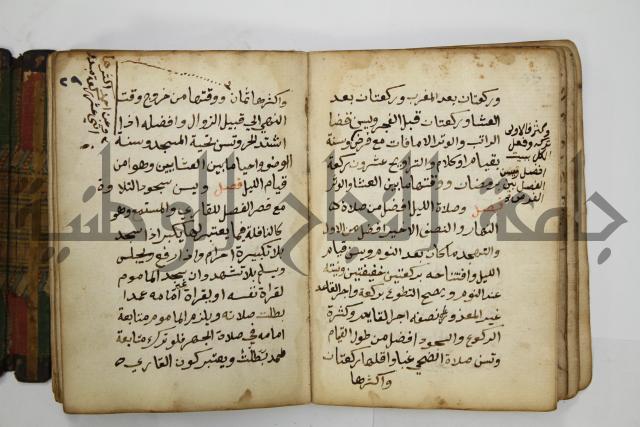 وركعتان بعد المغرب وركعتان بعد
العشا وركعتان قبل الفجر ويسن قضا
الراتب والوتر الا ما فات مع فرضه وسنة
بقيام او كلام والتراويح عشرون ركعة
برمضان ووقتها ما بين العشا والوتر
فصل وصلاة الليل افضل من صلاة
النهار والنصف الاخير افضل من الاول
والتهجد ما كان بعد النوم ويسن قيام
الليل وافتتاحه بركعتين خفيفتين ونيته
عند النوم ويصح التطوع بركعة واجر القاعد
غير المعذور نصف اجر القايم وكثرة
الركوع والسجود افضل من طول القيام
وتسن صلاة الضحى غبا واقلها ركعتان
واكثرها
وكثر فالاولى
تركه وفعل
الكل ببيت
افضل ويسن
الفصل بين
الفرض
واكثرها ثمان ووقتها من خروج وقت
النهي الى قبيل الزوال وافضله اذا
اشتد الحر وتسن تحية المسجد وسنة
الوضو واحيا ما بين العشايين وهو من
قيام الليل فصل ويسن سجود التلاوة
مع قصر الفصل للقاري والمستمع وهو
كالنافلة فيما يعتبر لها يكبر اذا سجد
بلا تكبيرة احرام واذا رفع ويجلس
ويسلم بلا تشهد وان سجد الماموم
لقراة نفسه او لقراة غير امامه عمدا
بطلت صلاته ويلزم الماموم متابعة
امامه في صلاة الجهر فلو ترك متابعة
عمدا بطلت ويعتبر كون القاري
جامعة النجاح الوطنية